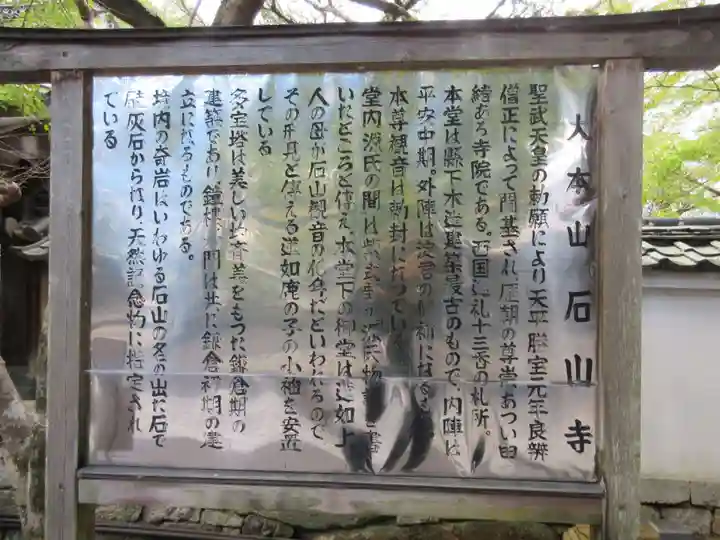 大本山石山寺
聖武天皇の勅願により天平勝宝元年良辨
僧正によって開基され、歴朝の尊崇あつい由
緒ある寺院である。西国巡礼十三番の札所。
本堂は縣下木造建築最古のもので、内陣は
平安中期。外陣は淀君の修補になるもの
本尊観音は勅封になってい
堂内源氏の間は紫式部が源氏物語を書
いたところと傳え、本堂下の御堂は蓮如上
人の母が石山観音の化身だといわれるので
その形見と傳える蓮如鹿の子の小袖を安置
している
多宝塔は美しい均斉美をもつた鎌倉期の
建築であり鐘楼、門は共に鎌倉初期の建
立になるものである。
境内の奇岩はいわゆる石山の名の出た石で
硅灰石からなり、天然記念物に指定され
ている